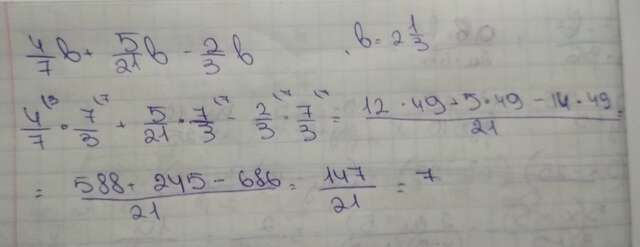 4/7 в + 5/21 в - 2/3 в    в = 2 1/3
4/7 (3 · 7/3 (7 + 5/21 · 7/3 (7 - 2/3 (7 · 7/3 (7 = (12 · 49 + 5 · 49 - 14 · 49)/21 =
= (588 + 245 - 686)/21 = 147/21 = 7